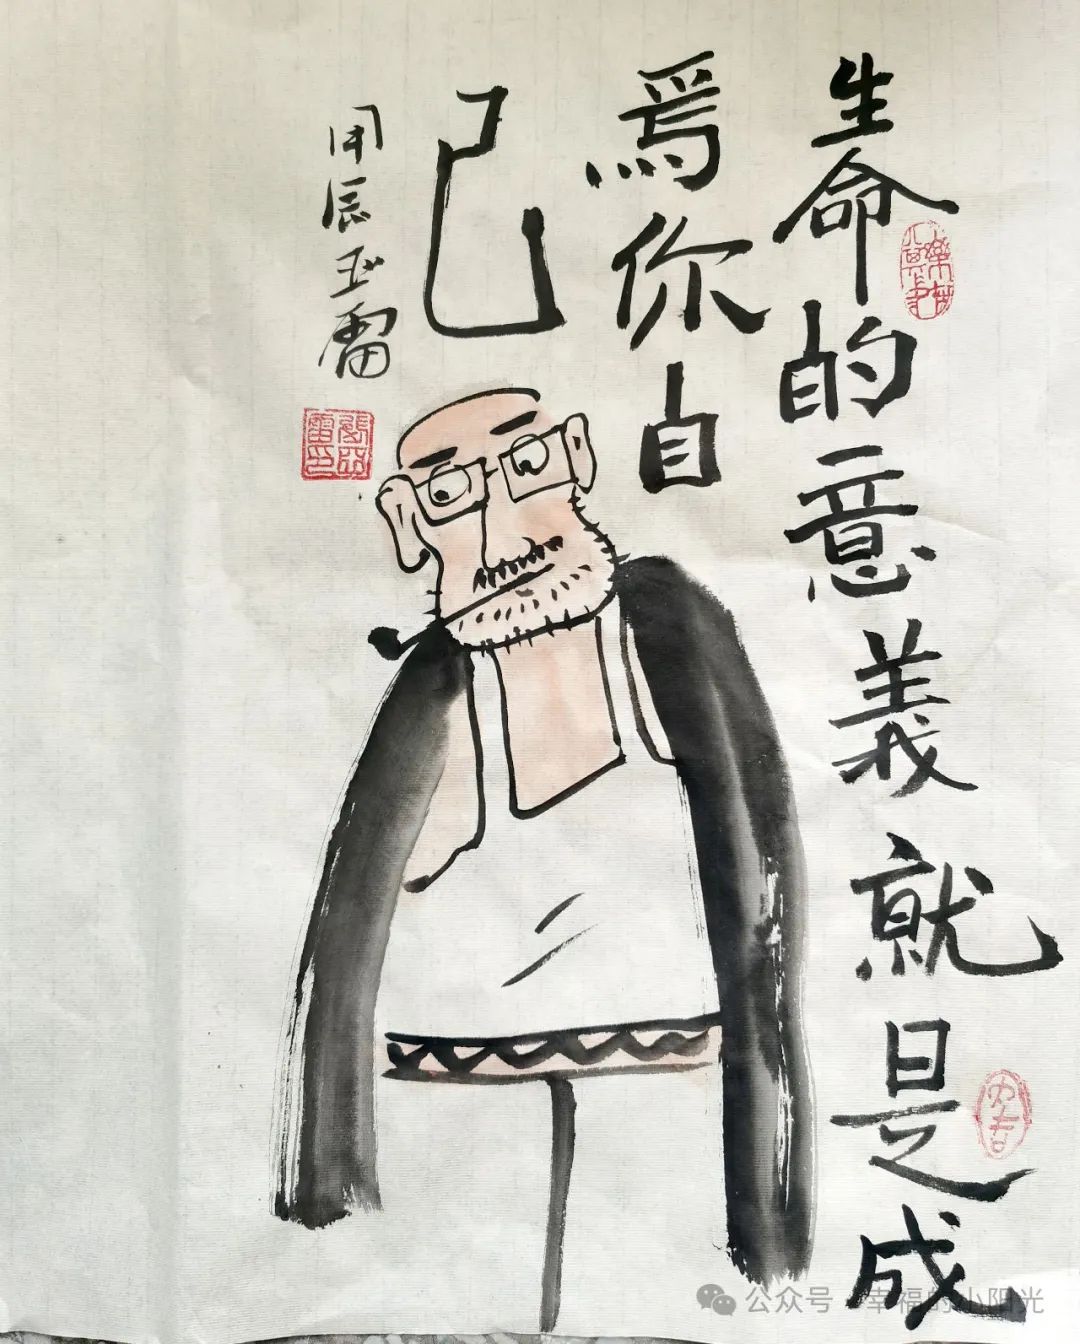 生命的意義就是成
爲你自
己
甲辰亚雷
公众号 · 幸福的小阳光